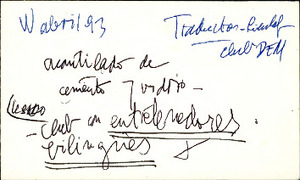 W abril 93
Traductor
club DEM
acantilado de
cemento y vidrio -
- club con entretenedores
bilingües